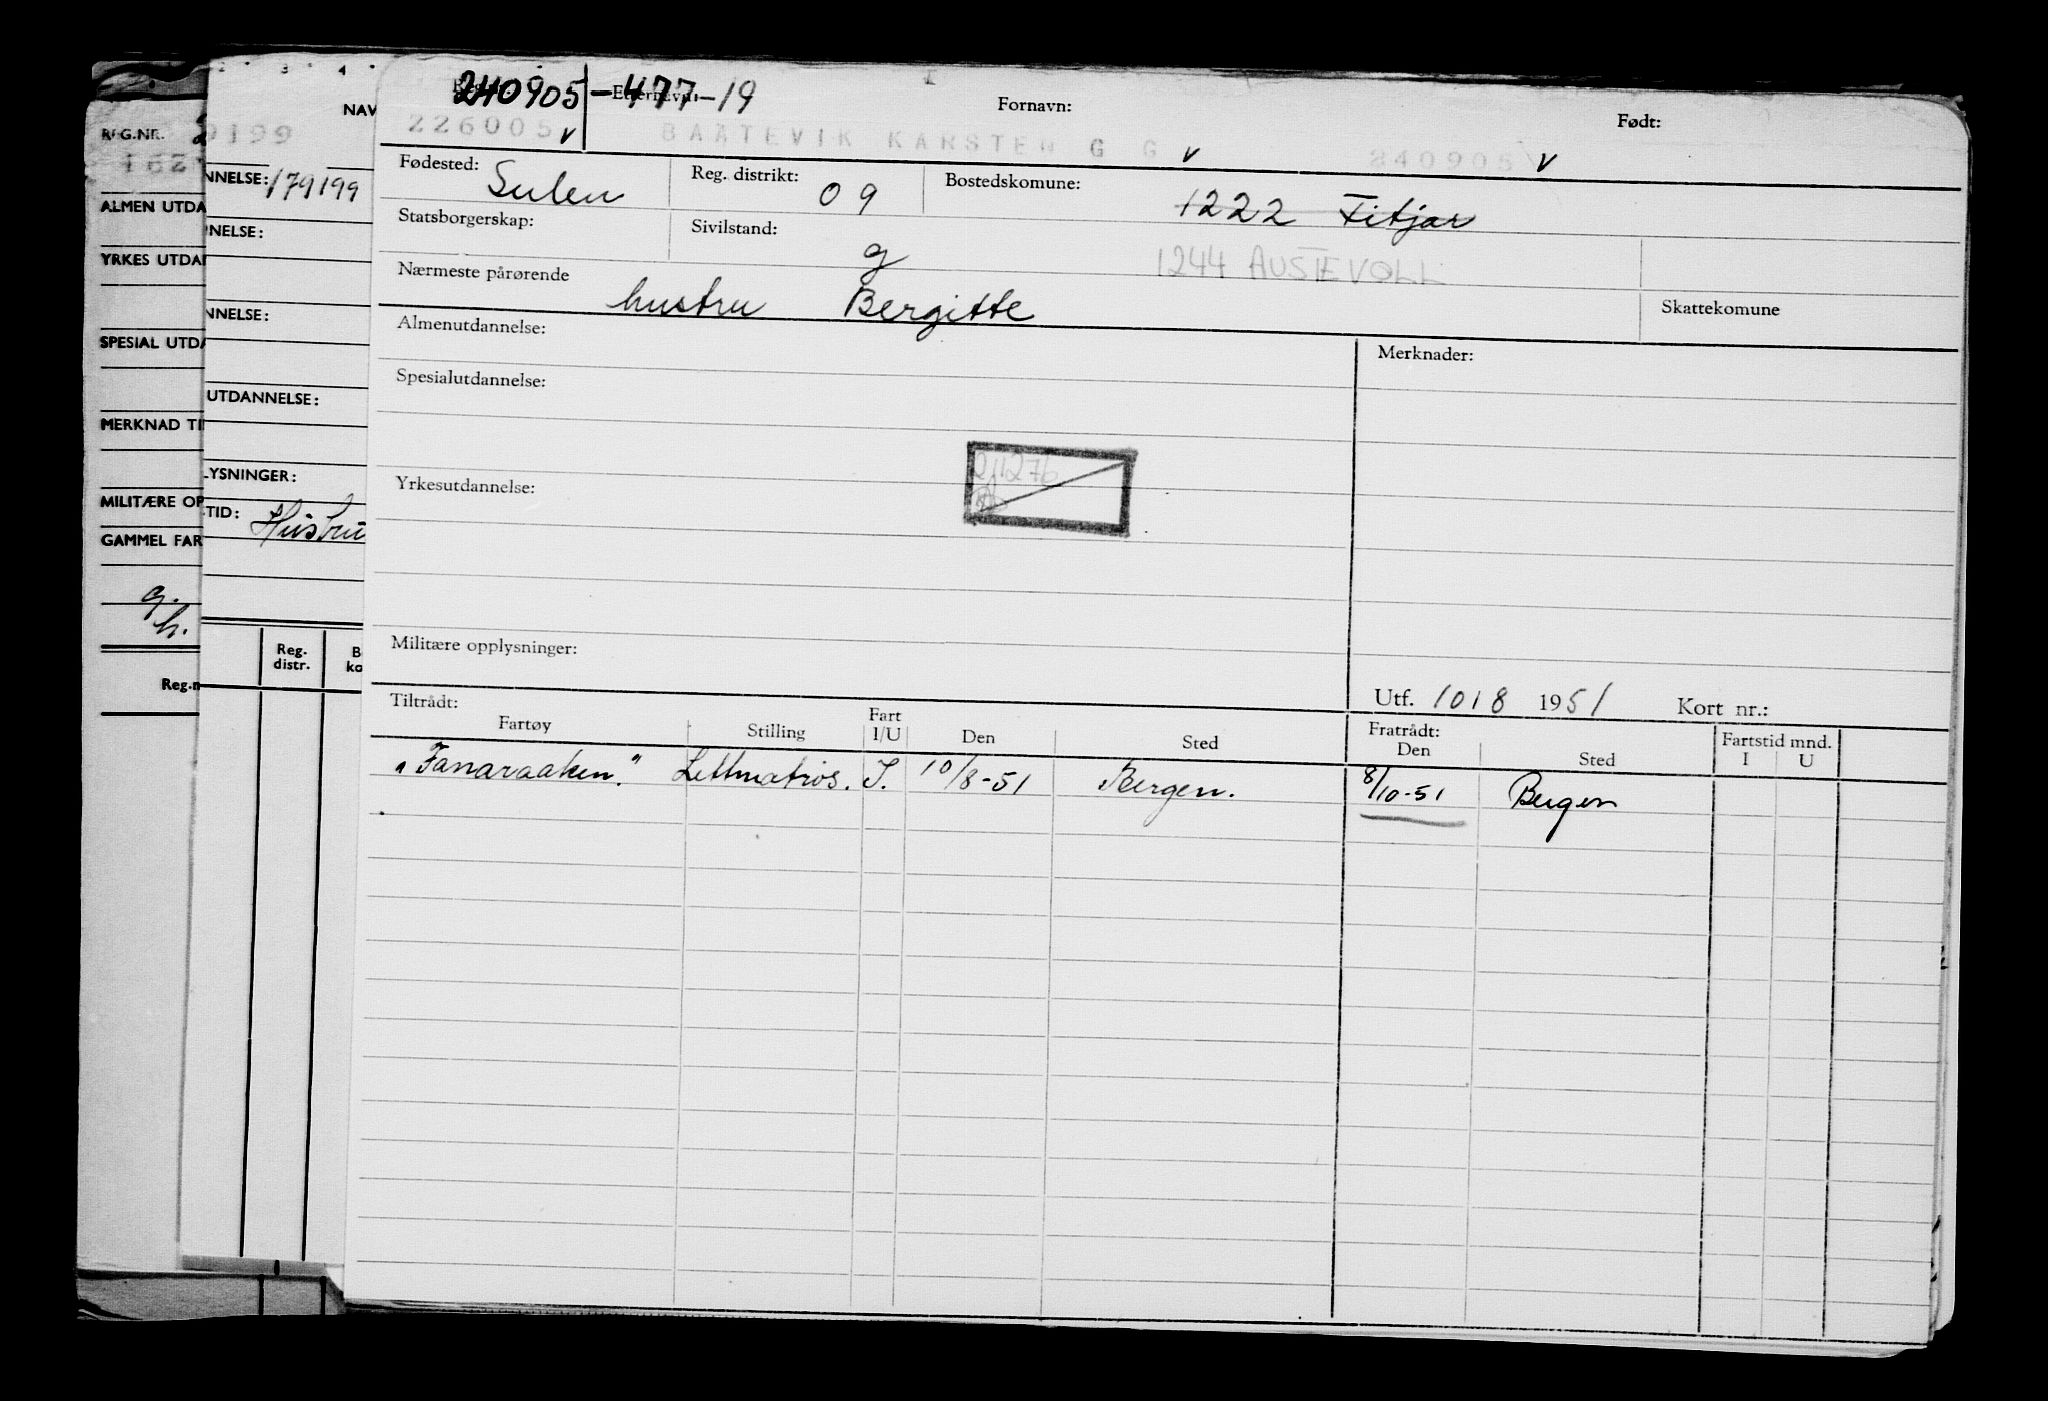 2 3 4
NAV
REG.NR. 9199
162
NNELSE: 179199
ALMEN UTDA
NNELSE:
YRKES UTDA
NNELSE:
SPESIAL UTDA
UTDANNELSE:
MERKNAD TI
LYSNINGER:
MILITÆRE OP
TID: Hustru
GAMMEL FAR
g.
h.
Reg. distr.
B
ko
Reg.n
240905-477-19
Etternavn: Fornavn: Født:
226005 v BAATEVIK KARSTEN G G v 240905 v
Fødested: Sulen Reg. distrikt: 09 Bostedskomune: 1222 Fitjar
Statsborgerskap: Sivilstand: g 1244 AUSTEVOLL
Nærmeste pårørende hustru Bergitte Skattekomune
Almenutdannelse: Merknader:
Spesialutdannelse:
211276
Yrkesutdannelse:
Militære opplysninger:
Utf. 10/8 1951 Kort nr.:
Tiltrådt: Fratrådt: Fartstid mnd.
Fartøy Stilling Fart I/U Den Sted Den Sted I U
"Fanaraaken." Lettmatros. I. 10/8-51 Bergen. 8/10-51 Bergen